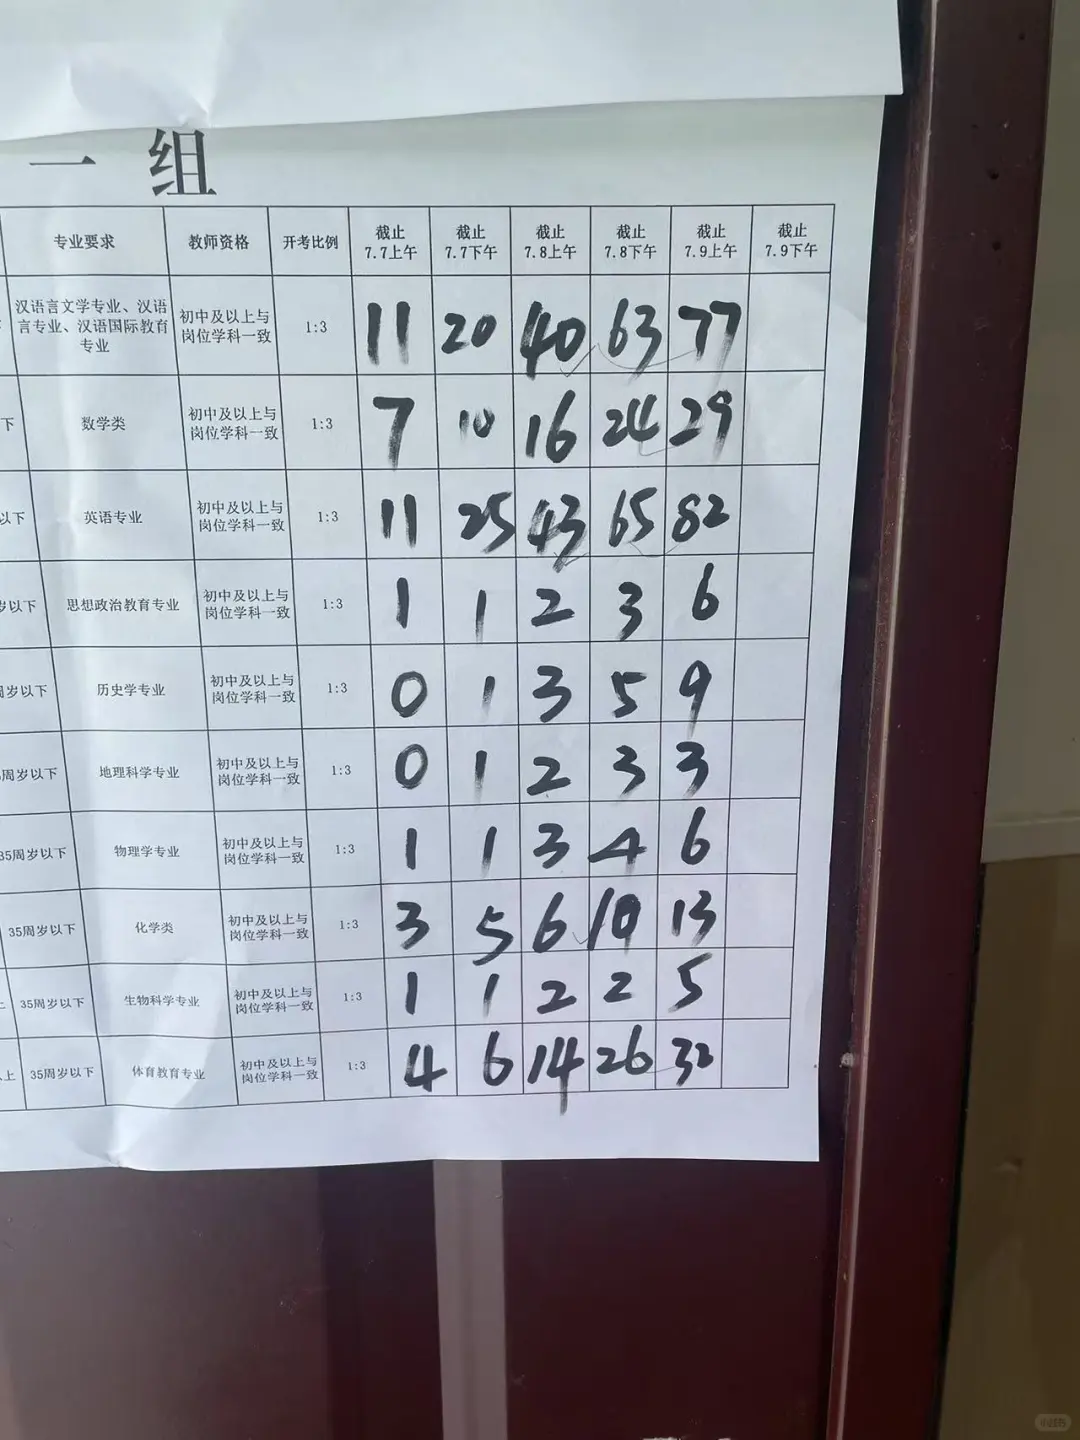 一 组
专业要求 教师资格 开考比例 截止 7.7上午 截止 7.7下午 截止 7.8上午 截止 7.8下午 截止 7.9上午 截止 7.9下午
汉语言文学专业、汉语
言专业、汉语国际教育
专业
初中及以上与
岗位学科一致
1:3 11 20 40 63 77
下 数学类
初中及以上与
岗位学科一致
1:3 7 10 16 24 29
以下 英语专业
初中及以上与
岗位学科一致
1:3 11 25 43 65 82
岁以下 思想政治教育专业
初中及以上与
岗位学科一致
1:3 1 1 2 3 6
周岁以下 历史学专业
初中及以上与
岗位学科一致
1:3 0 1 3 5 9
周岁以下 地理科学专业
初中及以上与
岗位学科一致
1:3 0 1 2 3 3
35周岁以下 物理学专业
初中及以上与
岗位学科一致
1:3 1 1 3 4 6
35周岁以下 化学类
初中及以上与
岗位学科一致
1:3 3 5 6 10 13
上 35周岁以下 生物科学专业
初中及以上与
岗位学科一致
1:3 1 1 2 2 5
以上 35周岁以下 体育教育专业
初中及以上与
岗位学科一致
1:3 4 6 14 26 32